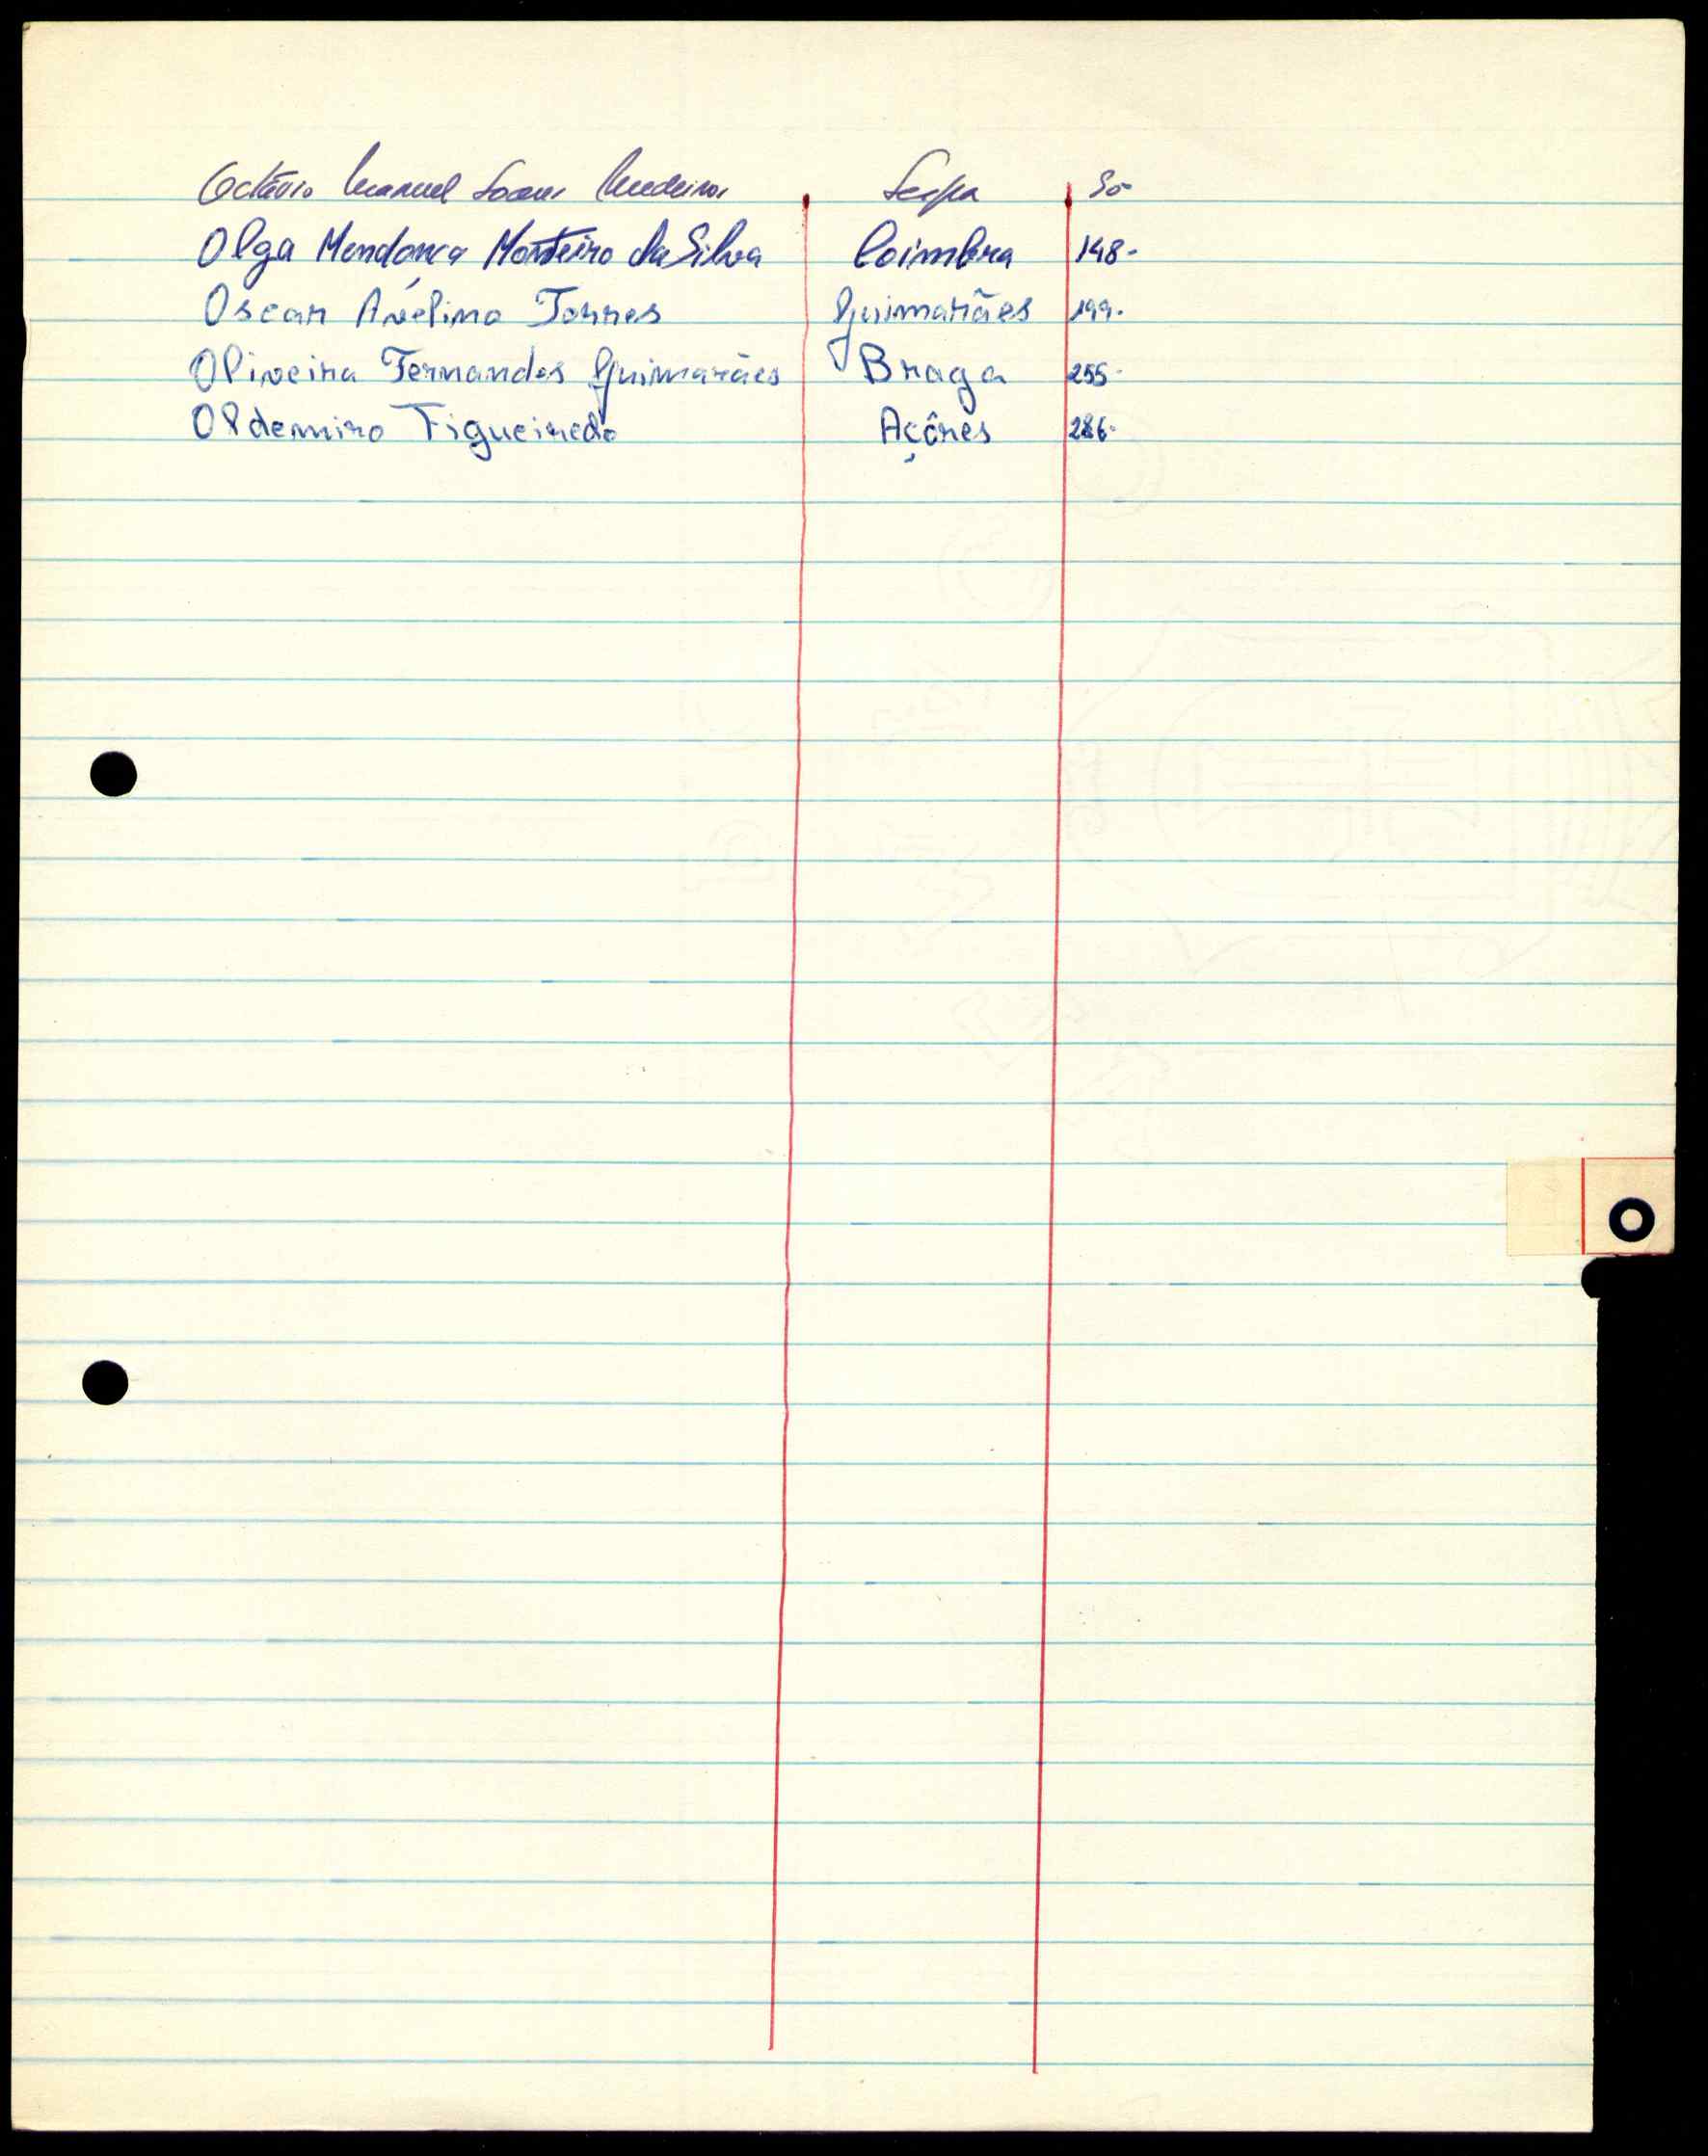 Octávio Manuel Soares Medeiros Serpa 50-
Olga Mendonça Monteiro da Silva Coimbra 148-
Oscar Avelino Torres Guimarães 199-
Oliveira Fernandes Guimarães Braga 255-
Oldemiro Figueiredo Açôres 286-
O